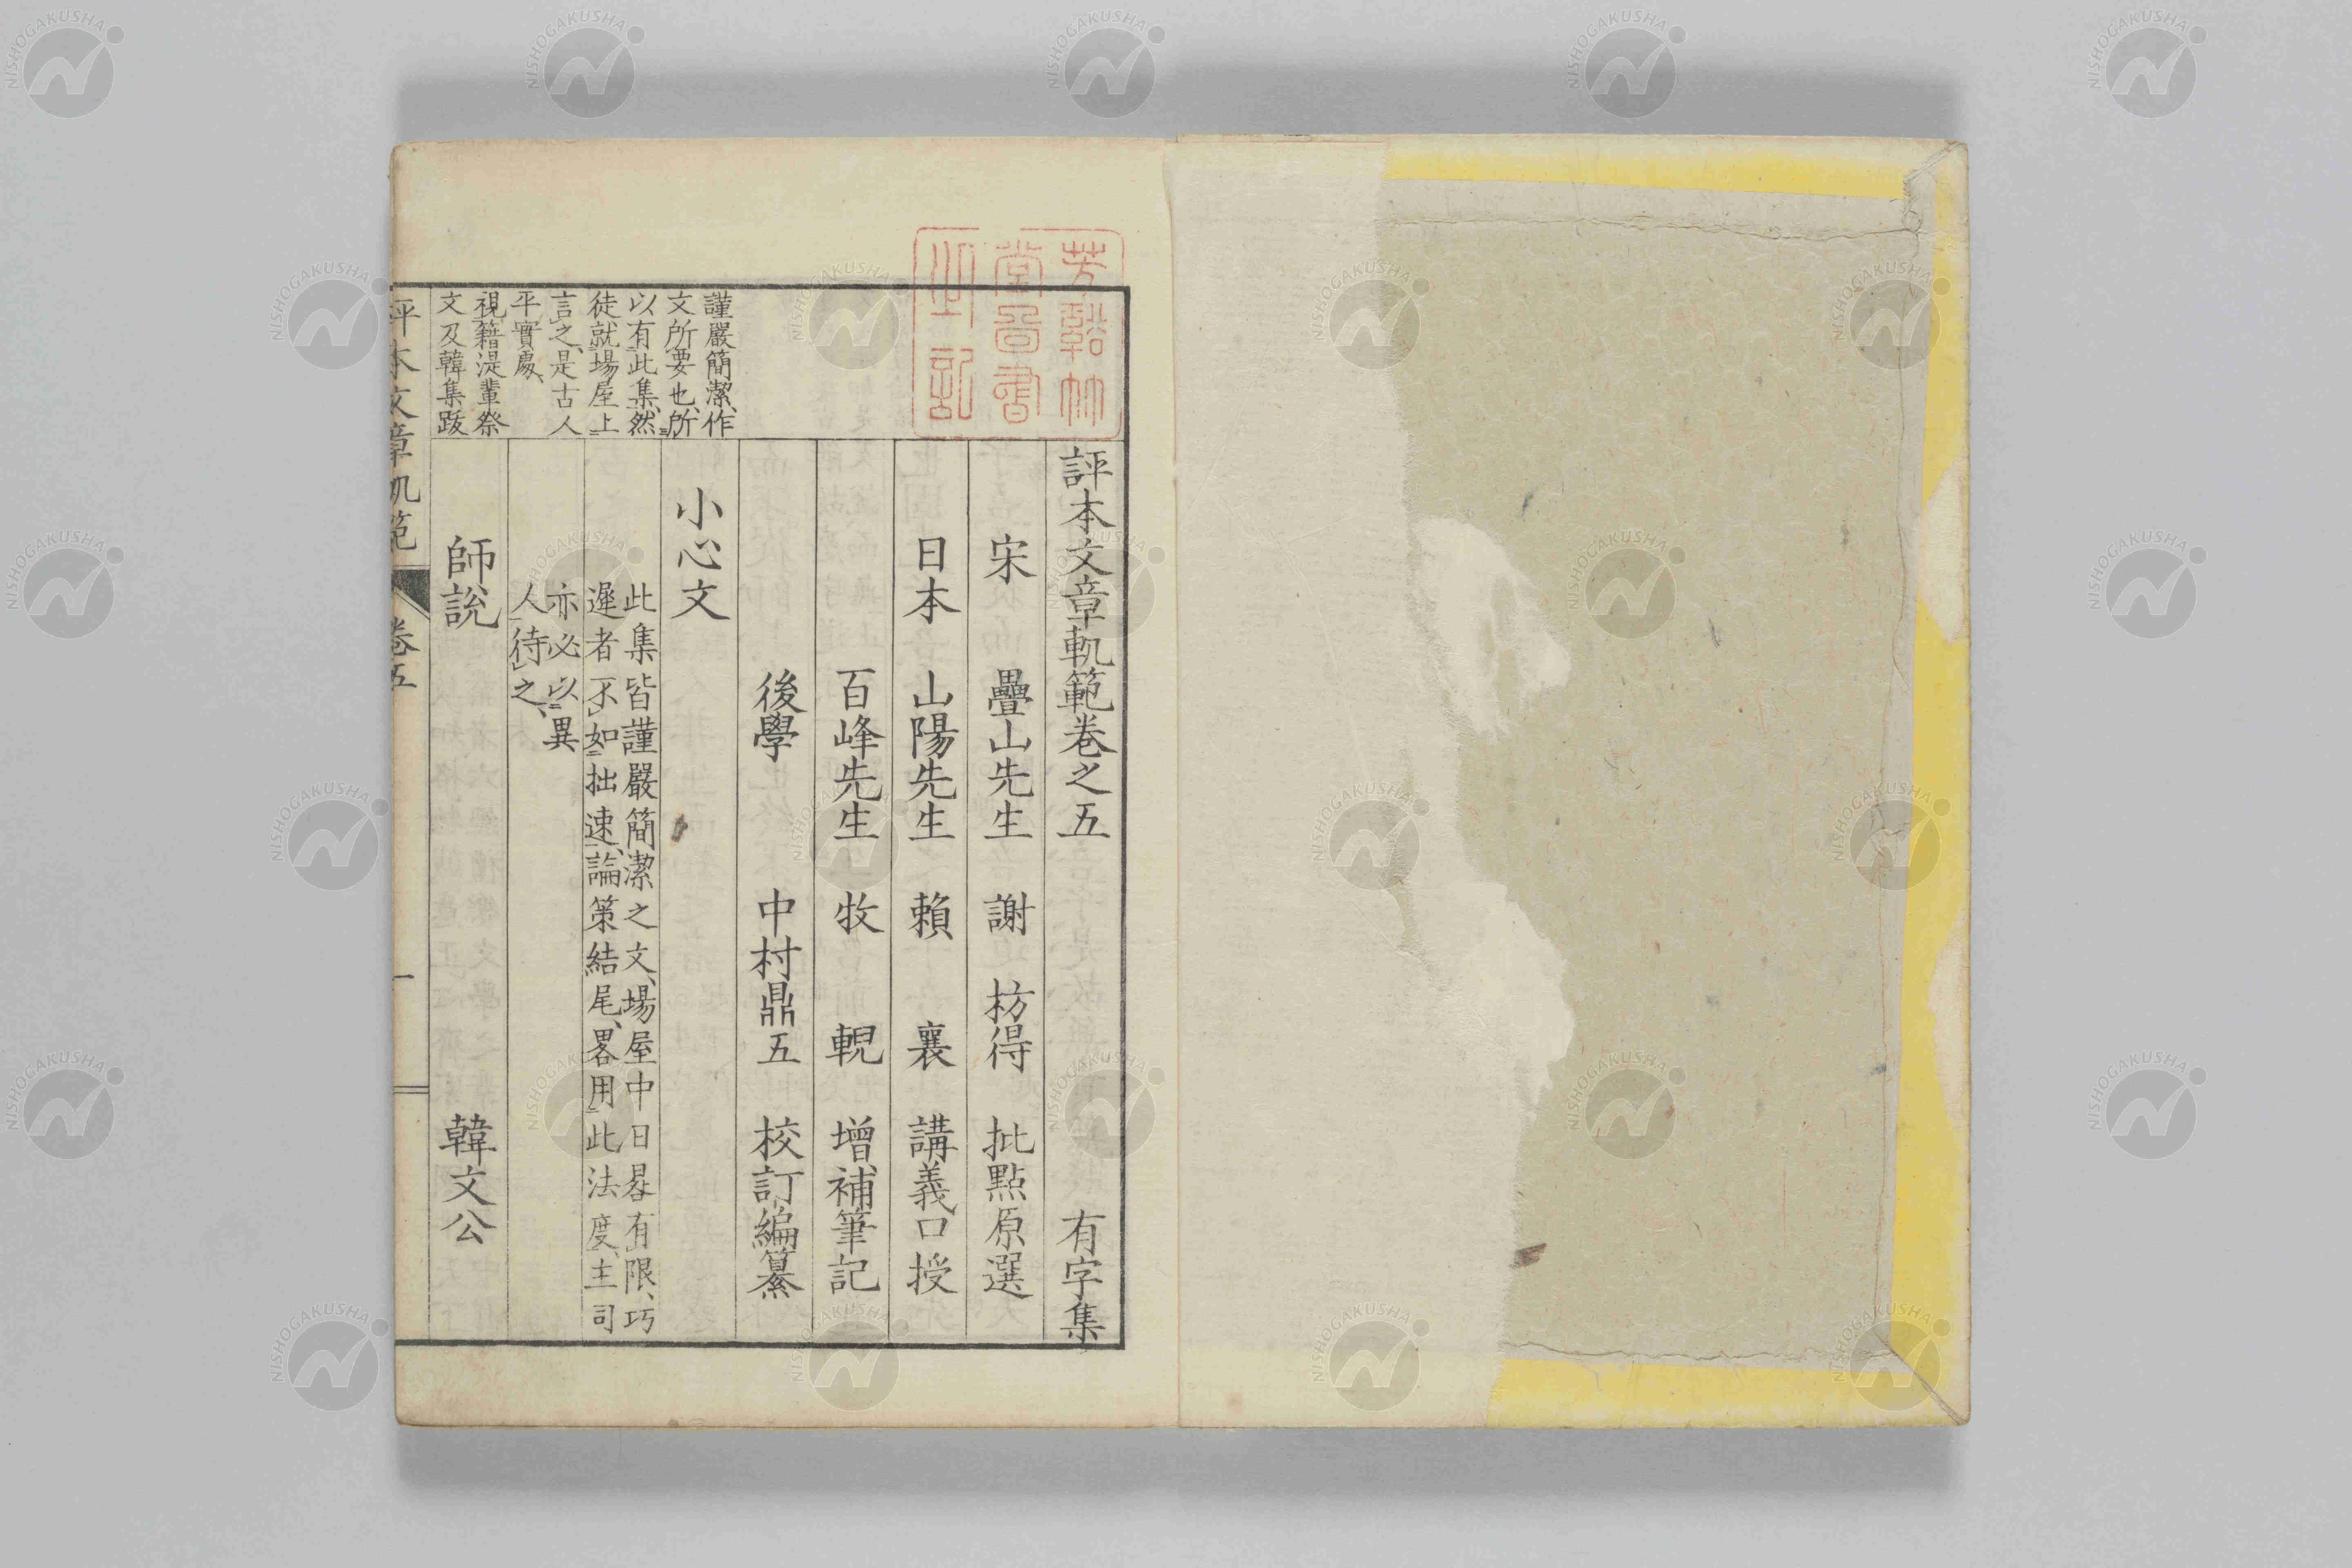 評本文章軌範卷之五　有字集
宋　疊山先生　謝　枋得　批點原選
日本　山陽先生　賴　襄　講義口授
百峰先生　牧　輗　增補筆記
後學　中村鼎五　校訂編纂
小心文
此集皆謹嚴簡潔之文、場屋中日晷有限、巧
遲者不如拙速、論策結尾、畧用此法度、主司
亦必以異
人待之、
師說　韓文公
謹嚴簡潔、作
文所要也、所
以有此集、然
徒就場屋上
言之、是古人
平實處、
視籍湜輩祭
文及韓集跋
評本文章軌範　卷五　一
芳谿竹
堂圖書
之記
NISHOGAKUSHA